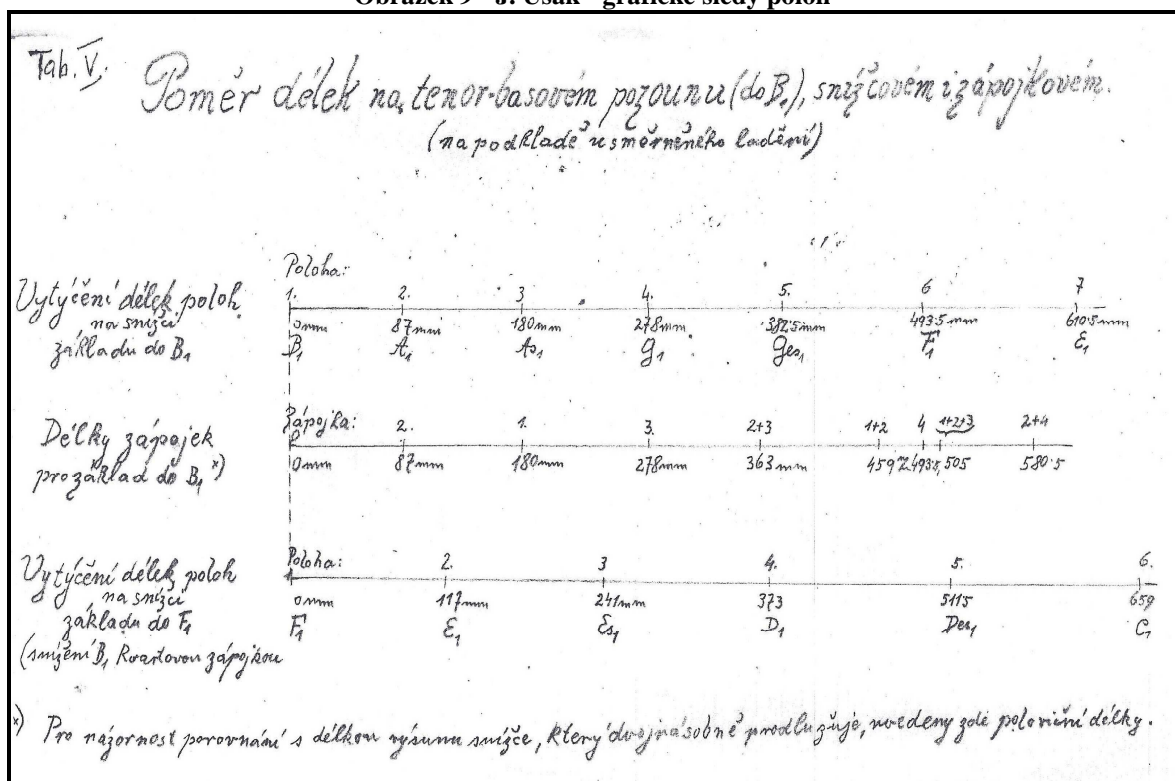 Obrázek 9 - J. Ušák - grafické sledy poloh
Tab. V.
Poměr délek na tenor-basovém pozounu (do B₁), snížcovém i zápojkovém.
(na podkladě usměrněného ladění)
Poloha:
Vytýčení délek poloh na snížci základu do B₁
1. 2. 3 4. 5. 6 7
0mm 87mm 180mm 278mm 382.5mm 493.5mm 610.5mm
B₁ A₁ As₁ G₁ Ges₁ F₁ E₁
Délky zápojek pro základ do B₁ x)
Zápojka:
0 2. 1. 3. 2+3 1+2 4 1+2+3 2+4
0mm 87mm 180mm 278mm 363mm 459 493.5 505 580.5
Vytýčení délek poloh na snížci základu do F₁
(snížení B₁ kvartovou zápojkou
Poloha:
1 2. 3 4. 5. 6.
0mm 117mm 241mm 373 511.5 659
F₁ E₁ Es₁ D₁ Des₁ C₁
x) Pro názornost porovnání s délkou výsunu snížce, který dvojnásobně prodlužuje, uvedeny zde poloviční délky.